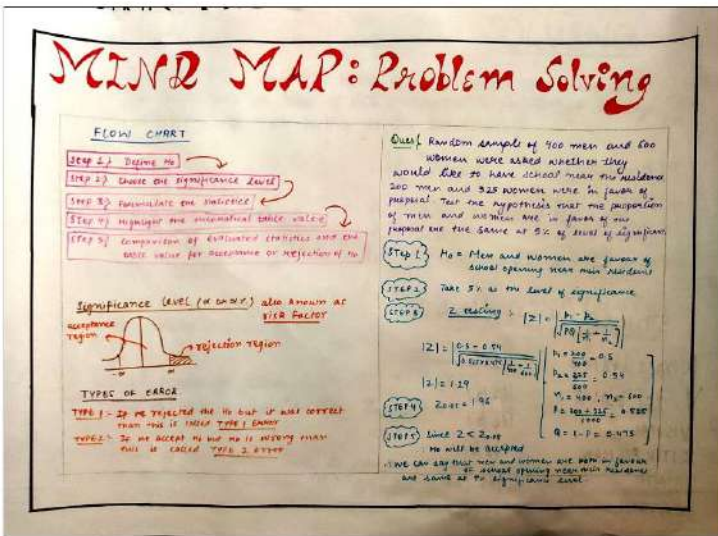 MIND MAP: Problem Solving
FLOW CHART
Step 1) Define H₀
Step 2) Choose the significance level
Step 3) Formulate the statistics
Step 4) Highlight the numerical table value
Step 5) Comparison of evaluated statistics and the
table value for acceptance or rejection of H₀
Significance level (α or 5%) also known as
risk factor
acceptance
region
rejection region
TYPES OF ERROR
TYPE 1:- If we rejected the H₀ but it was correct
then this is called TYPE 1 ERROR
TYPE 2:- If we accept H₀ but H₀ is wrong than
this is called TYPE 2 error
Ques/ Random sample of 400 men and 600
women were asked whether they
would like to have school near the residence
200 men and 325 women were in favor of
proposal. Test the hypothesis that the proportion
of men and women are in favor of
proposal are the same at 5% of level of significan
STEP 1 H₀ = Men and women are favour of
school opening near their residents
STEP 2 Take 5% as the level of significance
STEP 3 Z testing :- |Z| = | p₁ - p₂ / √PQ[1/n₁ + 1/n₂] |
|Z| = | 0.5 - 0.54 / √0.525×0.475(1/400 + 1/600) |
|Z| = 1.29
P₁ = 200/400 = 0.5
P₂ = 325/600 = 0.54
n₁ = 400, n₂ = 600
P = 200 + 325/1000 = 0.525
Q = 1 - P = 0.475
STEP 4 Z₀.₀₅ = 1.96
STEP 5 Since Z < Z₀.₀₅
H₀ will be accepted
∴ We can say that men and women are both in favour
of school opening near their residence
are same at 5% significance level